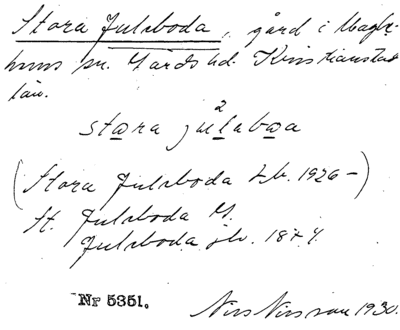 Stora Julaboda, gård i Magle-
hems sn. Gärds hd. Kristianstads
län.
2
stara julabωa
(Stora Julaboda Lb. 1926–)
St. Julaboda
Julaboda jb. 1874.
Nr 5351. Nils Nilsson 1930.